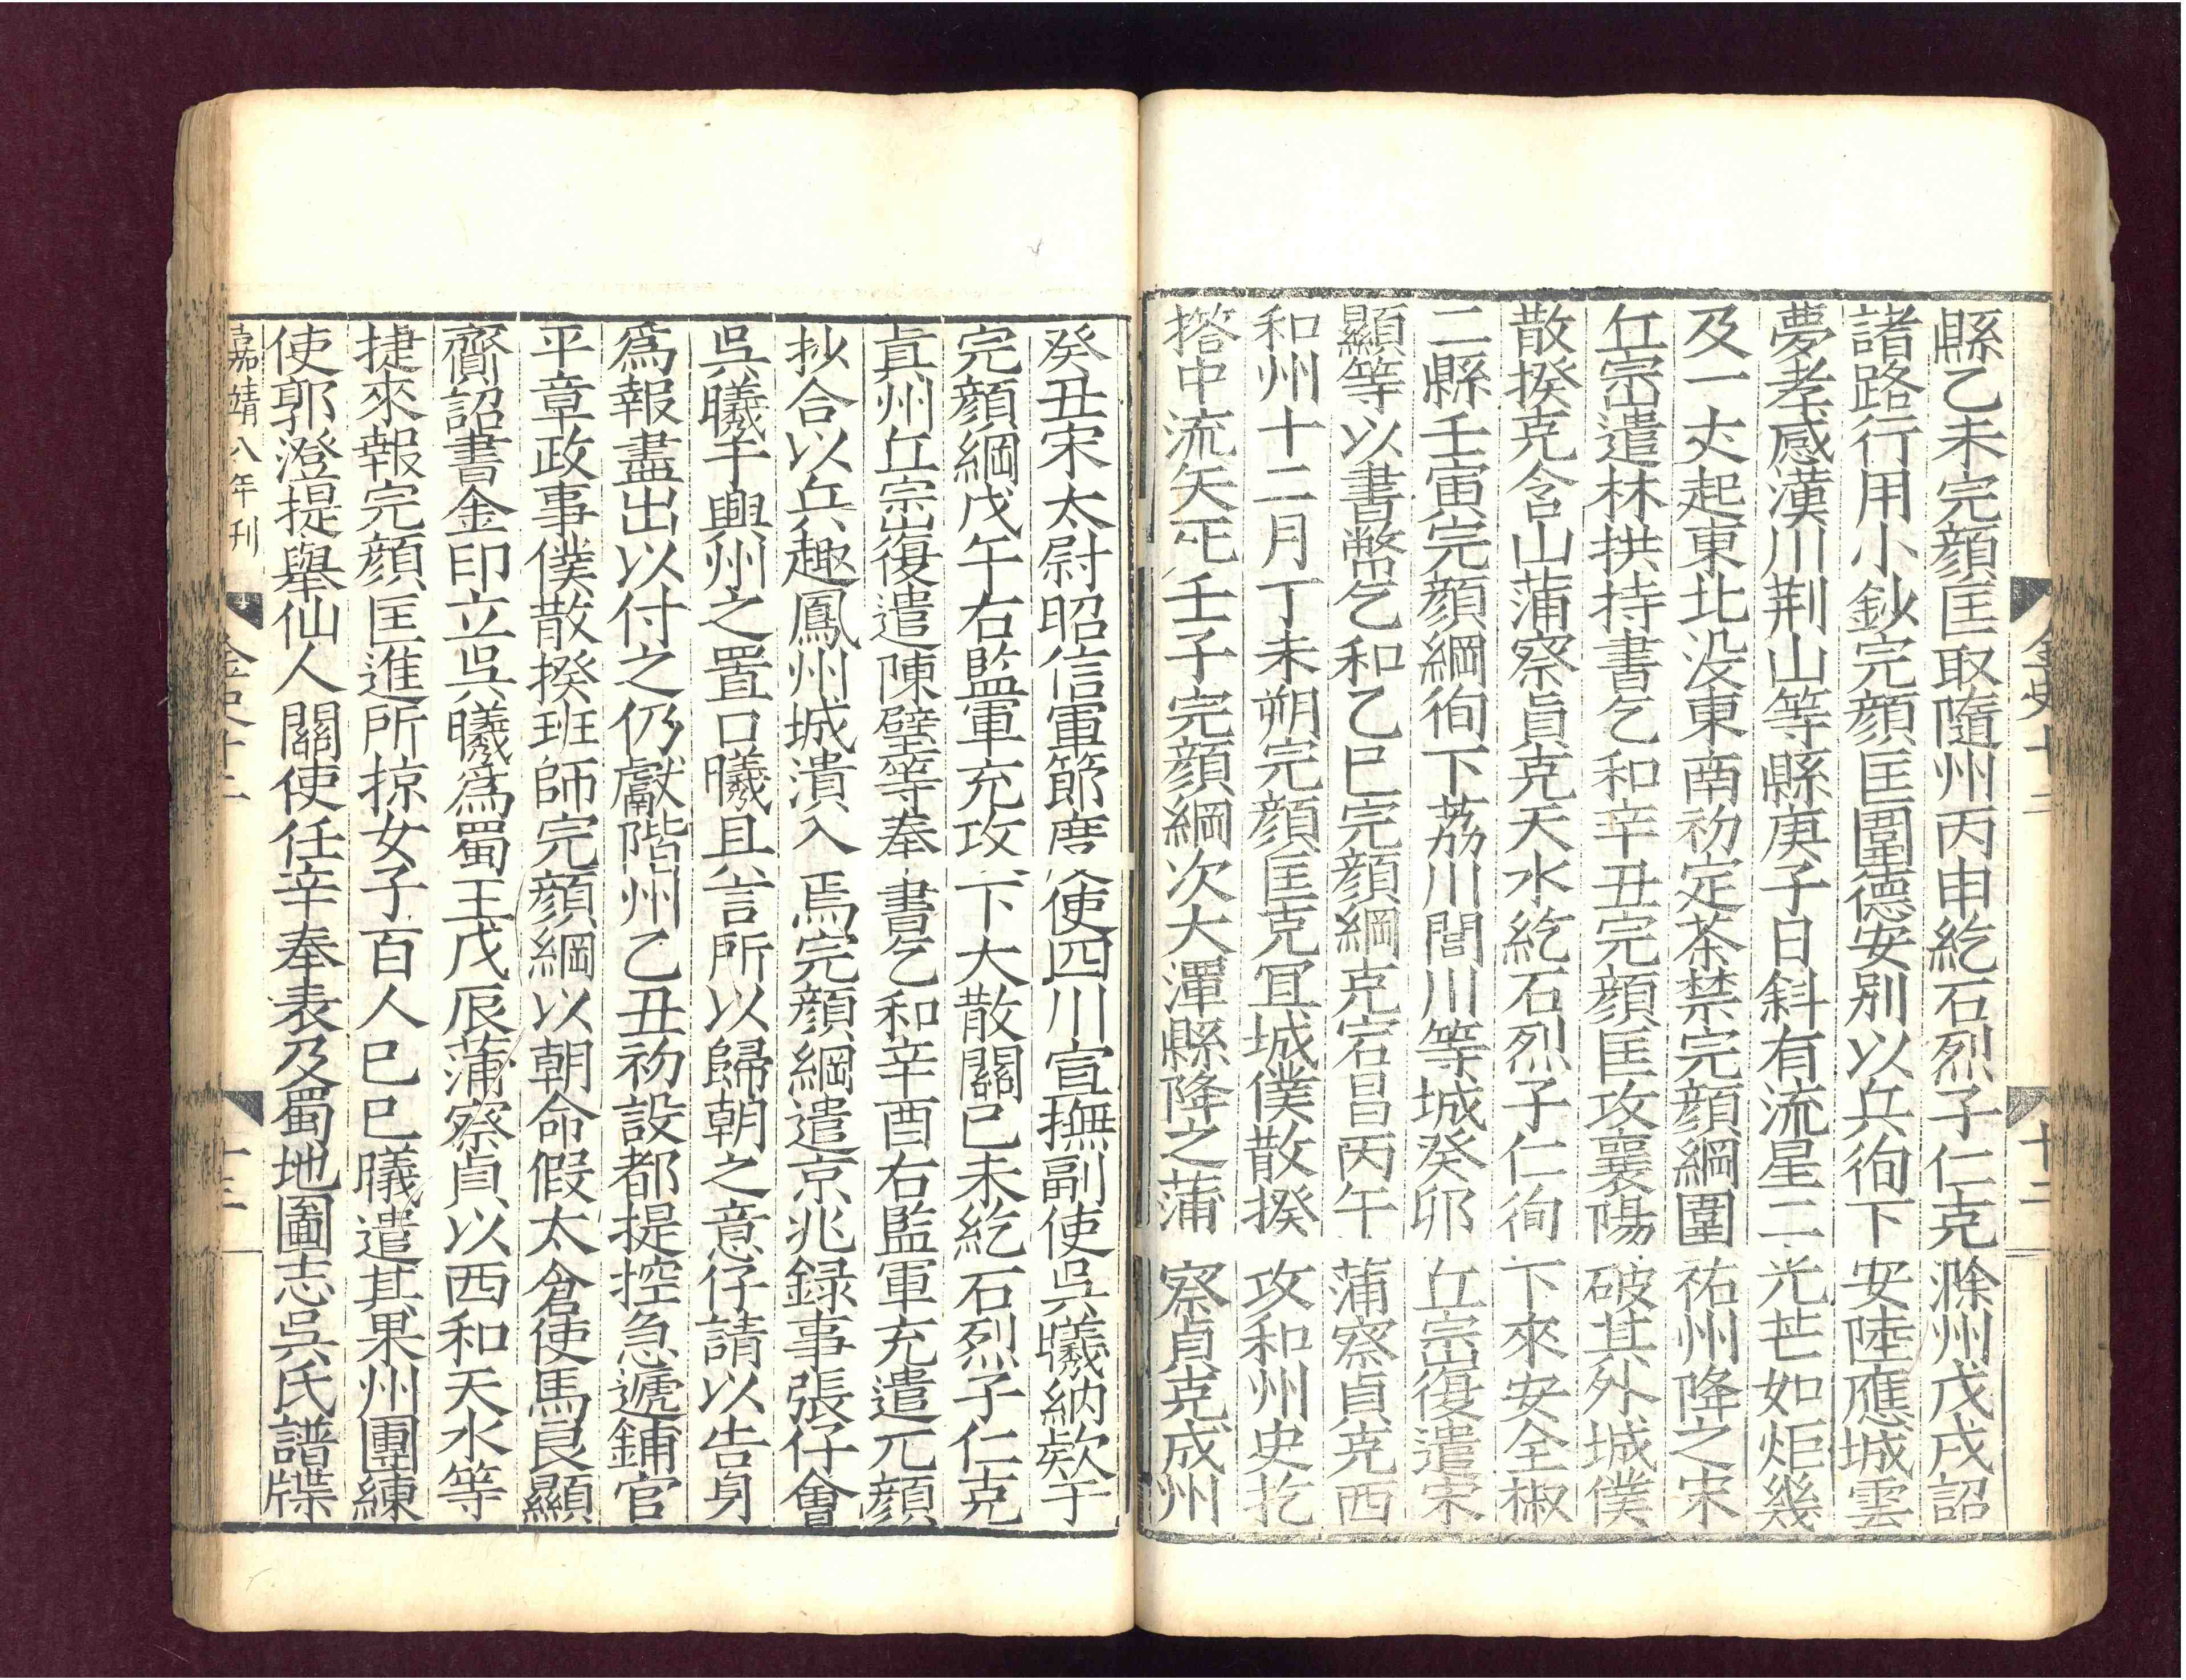 金史十二
十二
縣乙未完顏匡取隨州丙申紇石烈子仁克滁州戊戌詔
諸路行用小鈔完顏匡圍德安別以兵徇下安陸應城雲
夢孝感漢川荆山等縣庚子日斜有流星二光芒如炬幾
及一丈起東北没東南初定茶禁完顏綱圍祐州降之宋
丘崈遣林拱持書乞和辛丑完顏匡攻襄陽破其外城僕
散揆克含山蒲察貞克天水紇石烈子仁徇下來安全椒
二縣壬寅完顏綱徇下荔川閭川等城癸卯丘崈復遣宋
顯等以書幣乞和乙巳完顏綱克宕昌丙午蒲察貞克西
和州十二月丁未朔完顏匡克冝城僕散揆攻和州史扢
搭中流矢死壬子完顏綱次大潭縣降之蒲察貞克成州
癸丑宋太尉昭信軍節度使四川宣撫副使吳曦納欵于
完顏綱戊午右監軍充攻下大散關己未紇石烈子仁克
眞州丘崈復遣陳璧等奉書乞和辛酉右監軍充遣兀顏
抄合以兵趣鳳州城潰入焉完顏綱遣京兆録事張仔會
吳曦于興州之置口曦且言所以歸朝之意仔請以告身
爲報盡出以付之仍獻階州乙丑初設都提控急遞鋪官
平章政事僕散揆班師完顏綱以朝命假太倉使馬良顯
齎詔書金印立吳曦爲蜀王戊辰蒲察貞以西和天水等
捷來報完顏匡進所掠女子百人己巳曦遣其果州團練
使郭澄提舉仙人關使任辛奉表及蜀地圖志吳氏譜牒
嘉靖八年刊
金史十二
十三